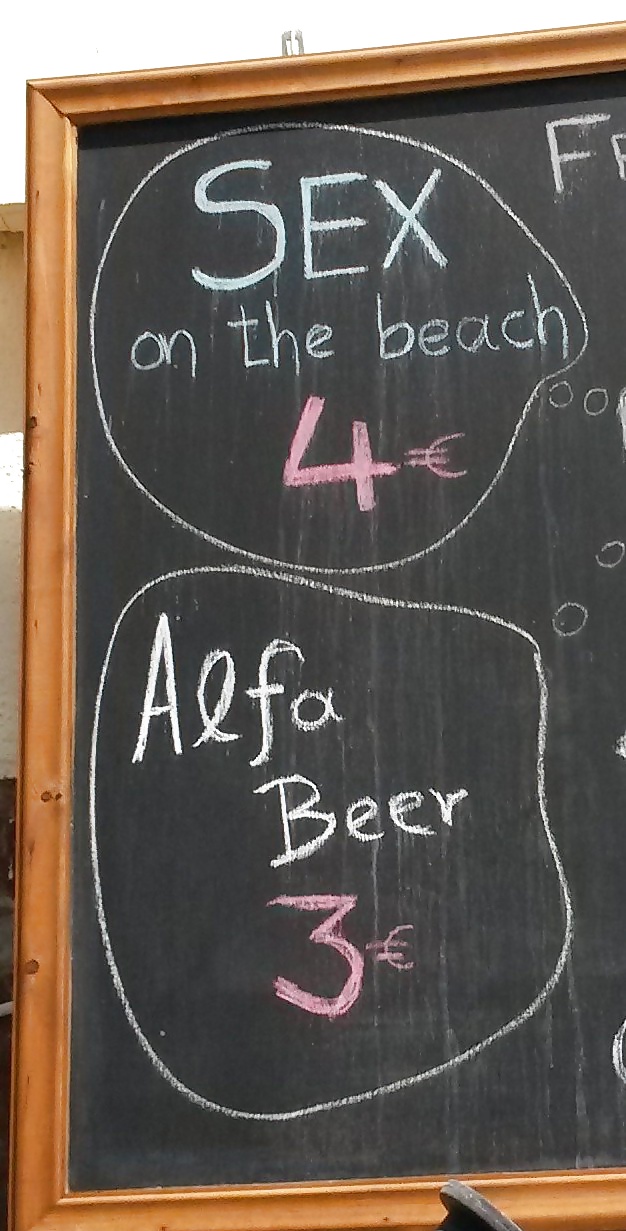 SEX
on the beach
4€
Alfa
Beer
3€